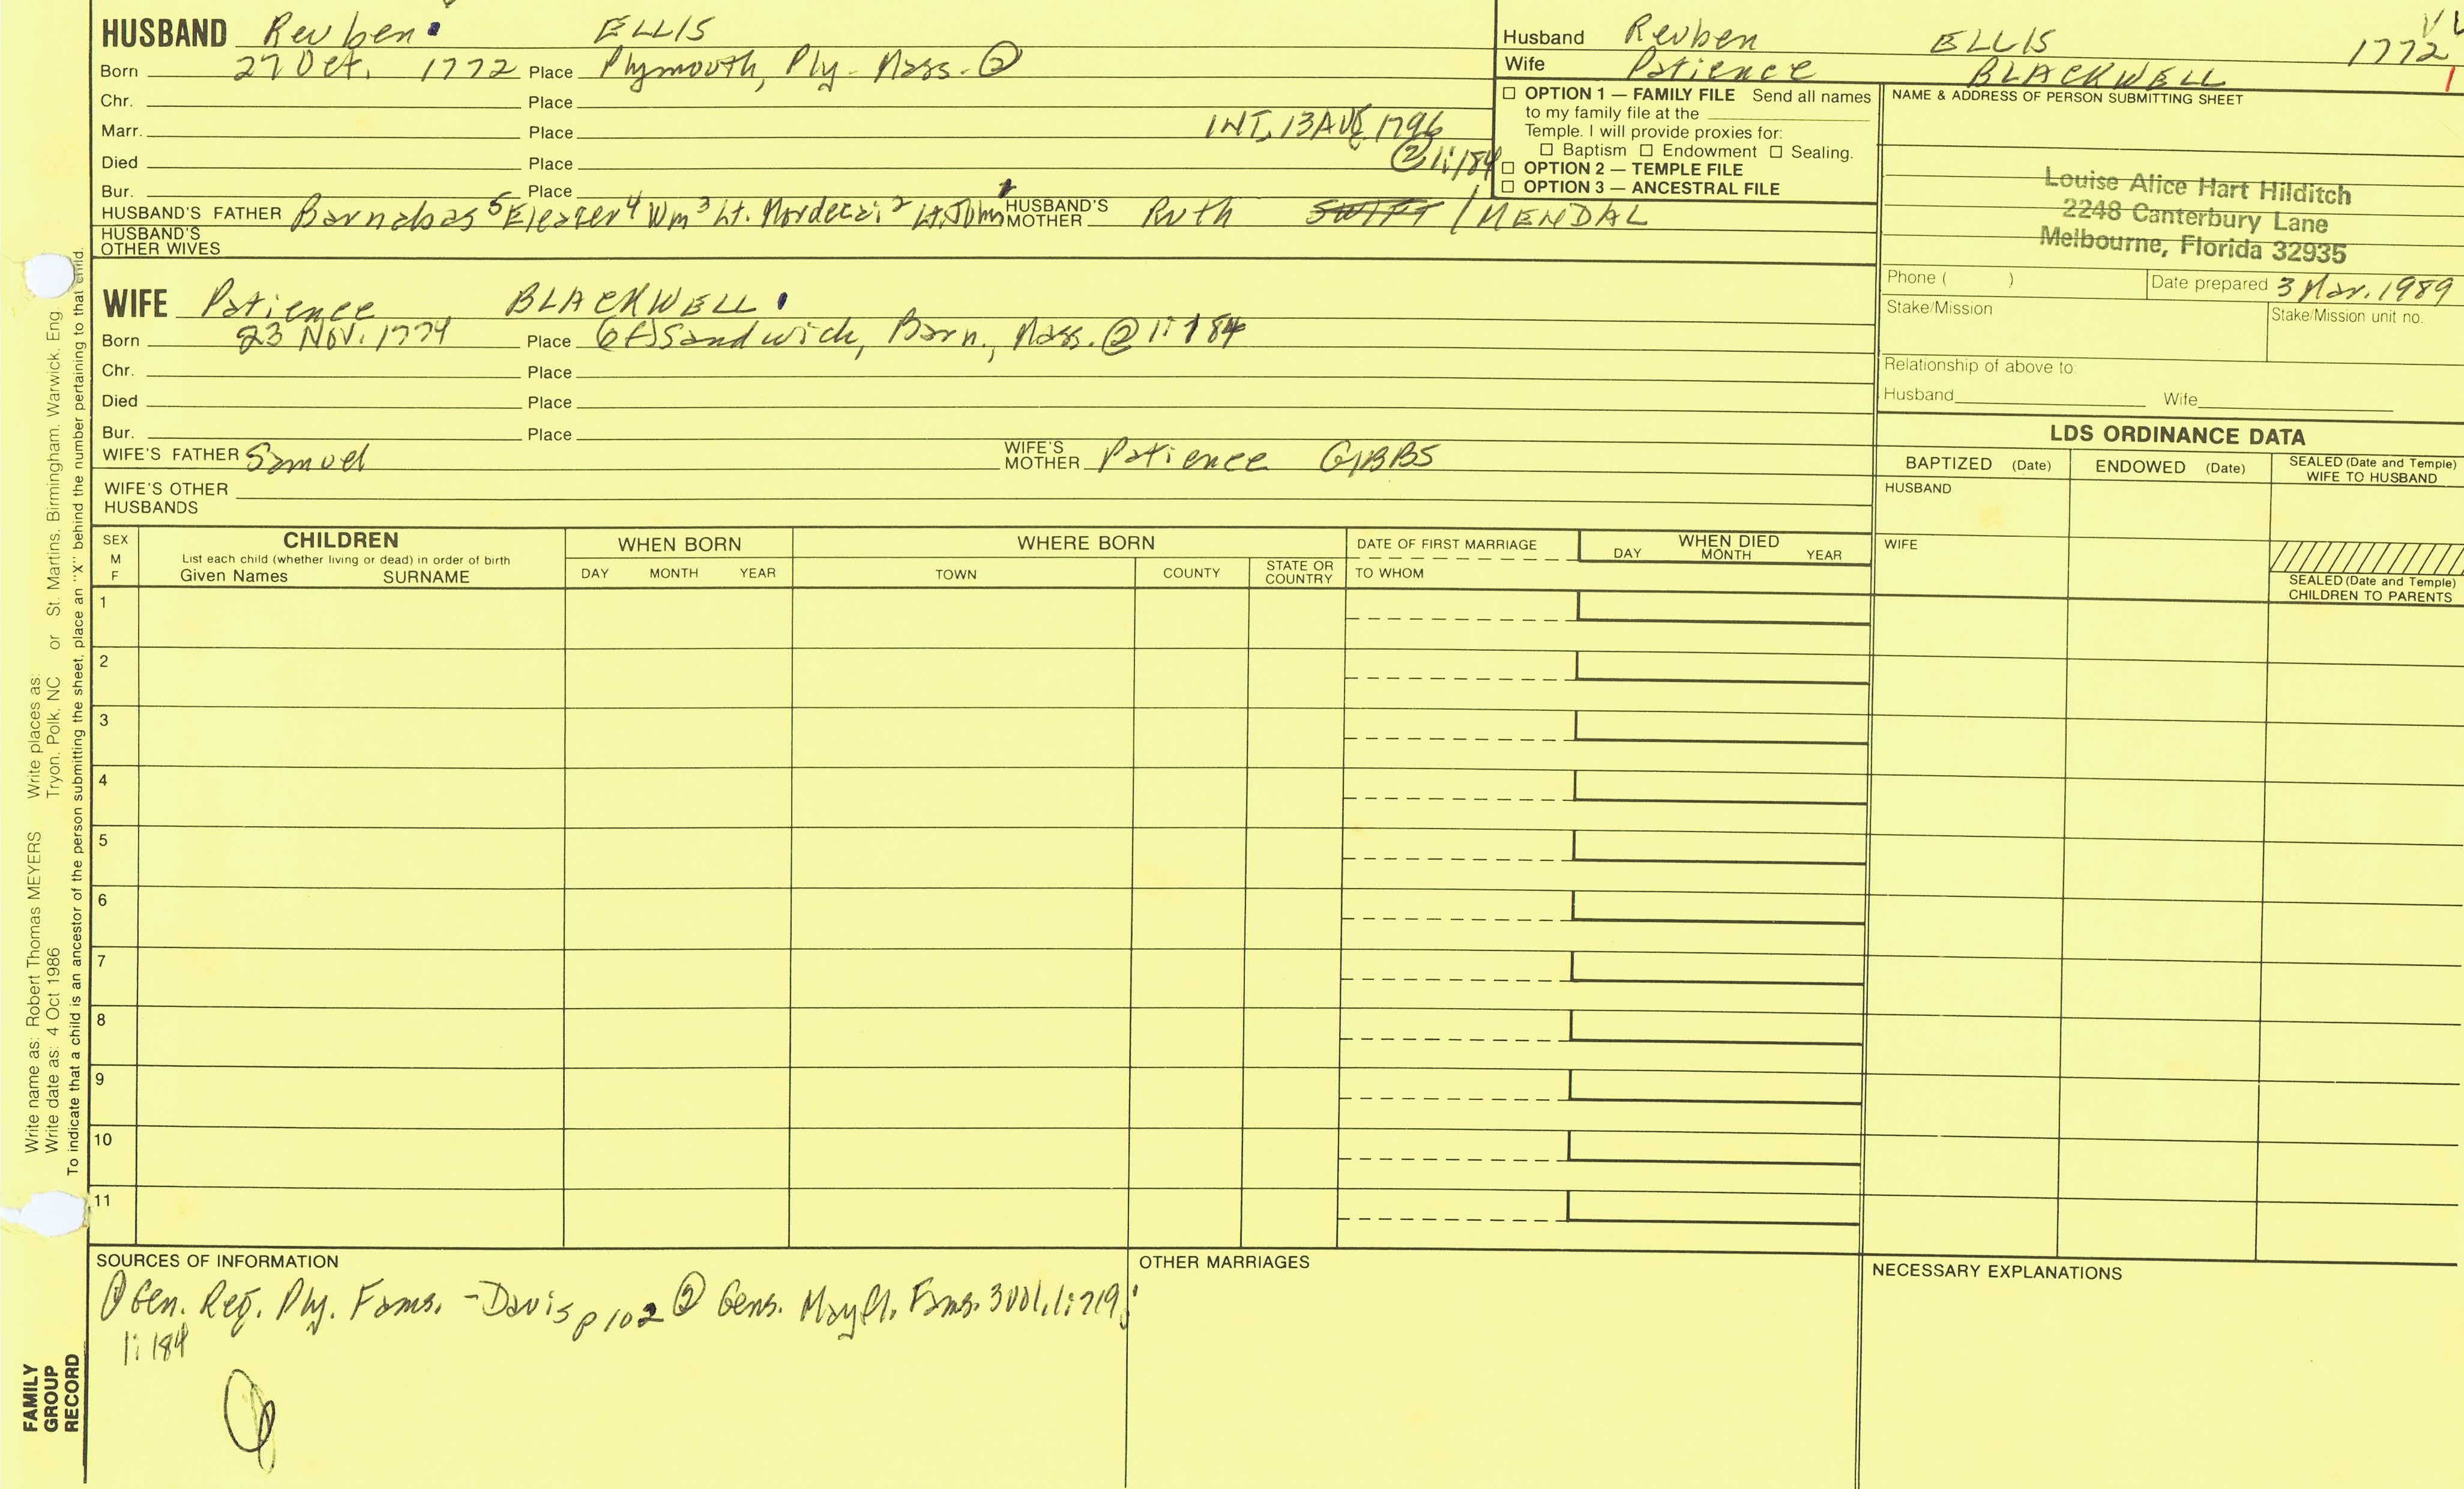 HUSBAND Reuben ELLIS
Born 27 Oct. 1772 Place Plymouth, Ply- Mass. ②
Chr. Place
Marr. Place INT, 13 AUG 1796
Died Place ② 1:184
Bur. Place
HUSBAND'S FATHER Barnabas 5 Eleazer 4 Wm 3 Lt. Mordecai 2 Lt. John 1 HUSBAND'S MOTHER Ruth SWIFT / MENDAL
HUSBAND'S OTHER WIVES
WIFE Patience BLACKWELL
Born 23 NOV. 1774 Place (of) Sandwich, Barn., Mass. ② 1:184
Chr. Place
Died Place
Bur. Place
WIFE'S FATHER Samuel WIFE'S MOTHER Patience GIBBS
WIFE'S OTHER HUSBANDS
Husband Reuben ELLIS 1772
Wife Patience BLACKWELL
☐ OPTION 1 — FAMILY FILE Send all names
to my family file at the
Temple. I will provide proxies for:
☐ Baptism ☐ Endowment ☐ Sealing.
☐ OPTION 2 — TEMPLE FILE
☐ OPTION 3 — ANCESTRAL FILE
NAME & ADDRESS OF PERSON SUBMITTING SHEET
Louise Alice Hart Hilditch
2248 Canterbury Lane
Melbourne, Florida 32935
Phone ( ) Date prepared 3 Mar. 1989
Stake/Mission Stake/Mission unit no.
Relationship of above to:
Husband Wife
LDS ORDINANCE DATA
BAPTIZED (Date) ENDOWED (Date) SEALED (Date and Temple) WIFE TO HUSBAND
HUSBAND
WIFE
SEALED (Date and Temple) CHILDREN TO PARENTS
SEX M F
CHILDREN
List each child (whether living or dead) in order of birth
Given Names SURNAME
WHEN BORN
DAY MONTH YEAR
WHERE BORN
TOWN COUNTY STATE OR COUNTRY
DATE OF FIRST MARRIAGE
TO WHOM
WHEN DIED
DAY MONTH YEAR
1
2
3
4
5
6
7
8
9
10
11
SOURCES OF INFORMATION
① Gen. Reg. Ply. Fams. - Davis p 102 ② Gens. Mayfl. Fams. 3 vol. 1:719;
1:184
OTHER MARRIAGES
NECESSARY EXPLANATIONS
Write name as: Robert Thomas MEYERS Write places as:
Write date as: 4 Oct 1986 Tryon, Polk, NC or St. Martins, Birmingham, Warwick, Eng.
To indicate that a child is an ancestor of the person submitting the sheet, place an "X" behind the number pertaining to that child.
FAMILY
GROUP
RECORD